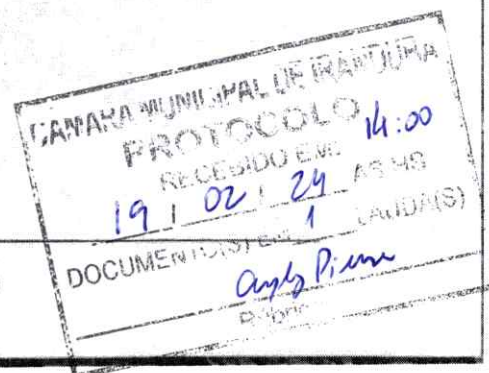 CAMARA MUNICIPAL DE IRANDUBA
PROTOCOLO
RECEBIDO EM: 14:00
19 / 02 / 24 AS HS
DOCUMENTO(S) EM 1 LAUDA(S)